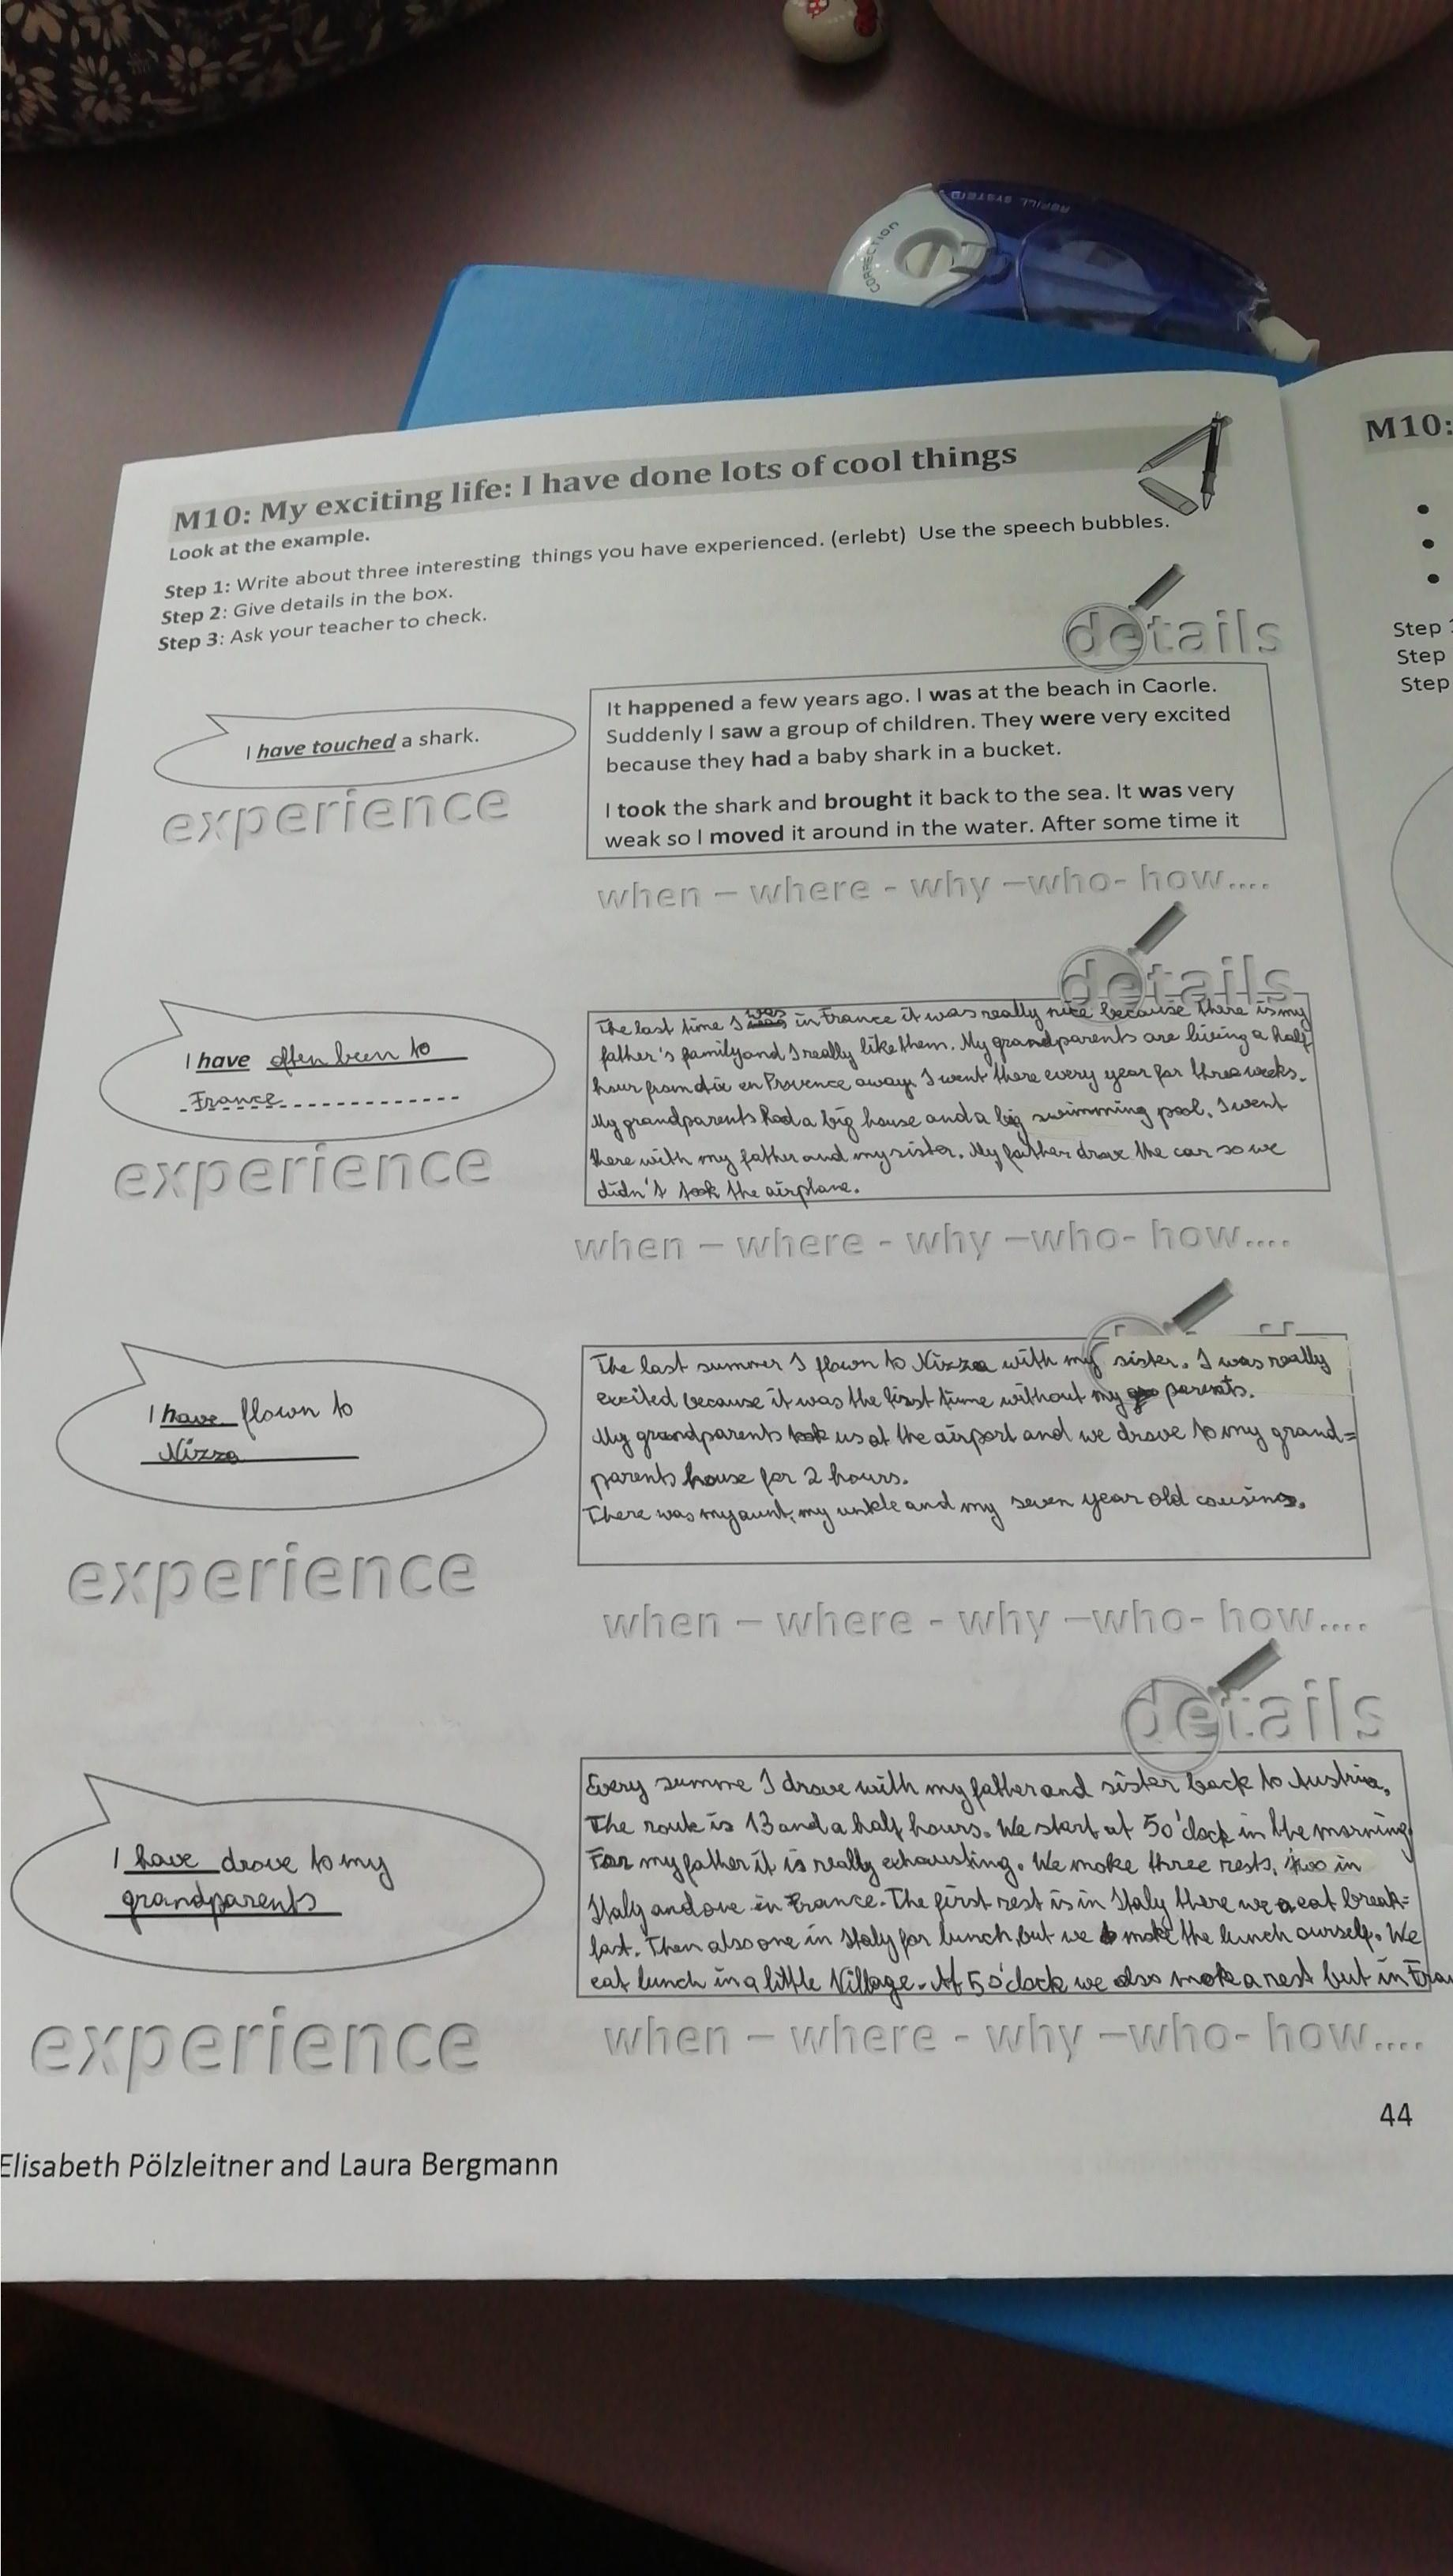 REFILL SYSTEM
CORRECTION
M10: My exciting life: I have done lots of cool things
Look at the example.
Step 1: Write about three interesting things you have experienced. (erlebt) Use the speech bubbles.
Step 2: Give details in the box.
Step 3: Ask your teacher to check.
details
I have touched a shark.
experience
It happened a few years ago. I was at the beach in Caorle.
Suddenly I saw a group of children. They were very excited
because they had a baby shark in a bucket.
I took the shark and brought it back to the sea. It was very
weak so I moved it around in the water. After some time it
when – where - why –who- how....
details
I have often been to
France
experience
The last time I was in France it was really nice because there is my
father's family and I really like them. My grandparents are living a half
hour from Aix en Provence away. I went there every year for three weeks.
My grandparents had a big house and a big swimming pool. I went
there with my father and my sister. My father drove the car so we
didn't took the airplane.
when – where - why –who- how....
I have flown to
Nizza
experience
The last summer I flown to Nizza with my sister. I was really
excited because it was the first time without my parents.
My grandparents took us at the airport and we drove to my grand=
parents house for 2 hours.
There was my aunt, my unkle and my seven year old cousins.
when – where - why –who- how....
details
I have drove to my
grandparents
experience
Every summe I drove with my father and sister back to Austria.
The route is 13 and a half hours. We start at 5 o'clock in the morning.
For my father it is really exhausting. We make three rests, two in
Italy and one in France. The first rest is in Italy there we eat break=
fast. Then also one in Italy for lunch, but we make the lunch ourself. We
eat lunch in a little Village. At 5 o'clock we also make a rest but in Fra
when – where - why –who- how....
44
Elisabeth Pölzleitner and Laura Bergmann
M10:
Step 1
Step
Step